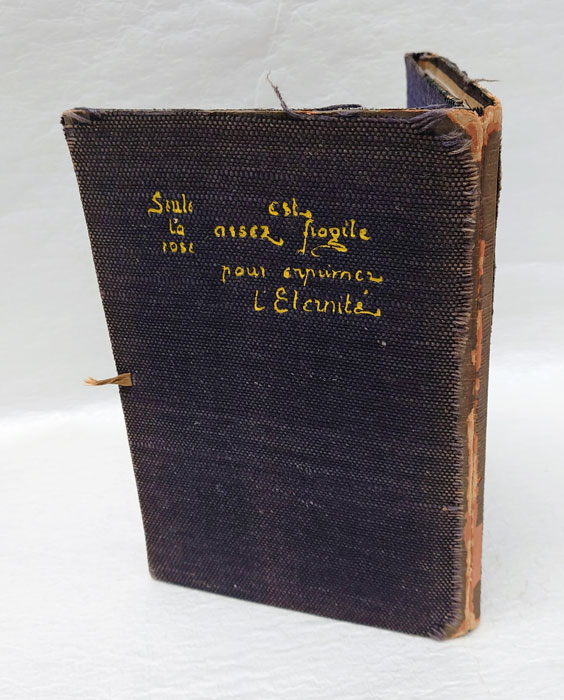 Seule est
la assez fragile
rose
pour exprimer
l'Eternité